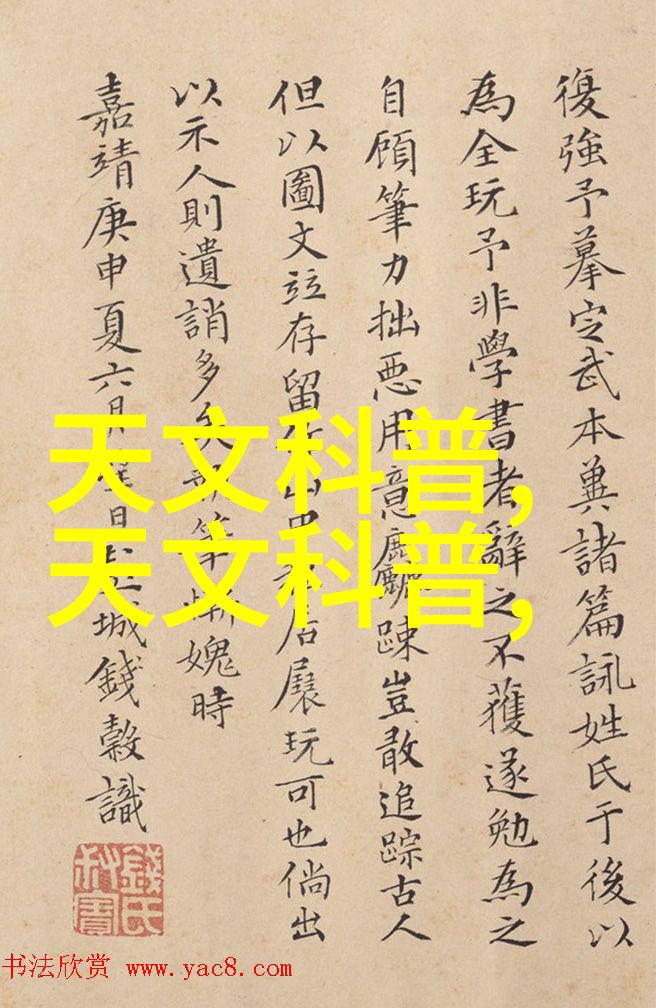 復強予摹定武本兼諸篇詠姓氏于後以
為全玩予非學書者辭之不獲遂勉為之
自顧筆力拙惡用意麤疎豈敢追踪古人
但以圖文竝存留居展玩可也倘出
以示人則遺誚多矣筆慚媿時
嘉靖庚申夏六月日城錢榖識
天文科普,
天文科普,
書法欣赏 www.yac8.com